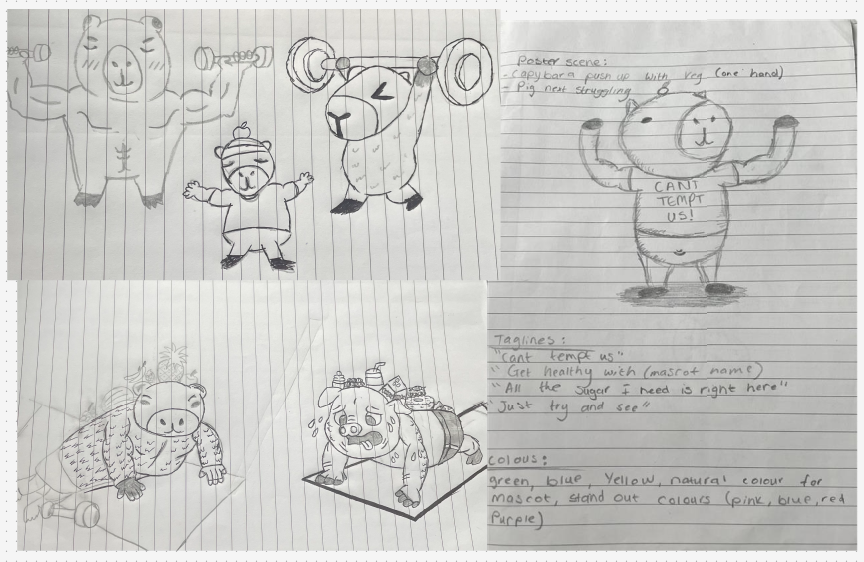 Poster scene:
- Capybara push up with veg (one hand)
- Pig next struggling
CANT
TEMPT
US!
Taglines:
"cant tempt us"
"Get healthy with (mascot name)
"All the sugar I need is right here"
"Just try and see"
Colous:
green, blue, Yellow, natural colour for
mascot, stand out colours (pink, blue, red
Purple)